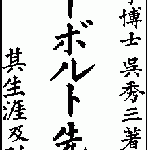 學博士 呉秀三著
ーボルト先
其生涯及